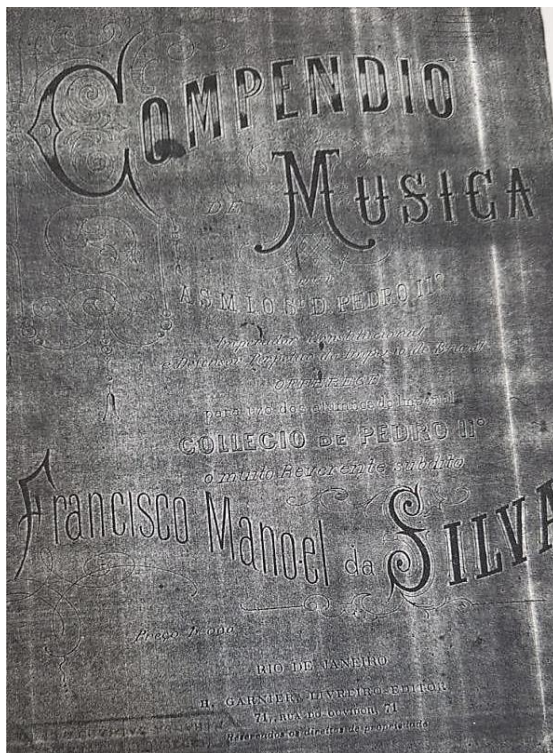 COMPENDIO
DE MUSICA
A S. M. I. O Sr. D. PEDRO IIº
Imperador Constitucional
e Defensor Perpetuo do Imperio do Brasil
OFFERECE
para uso dos alumnos do Imperial
COLLEGIO DE PEDRO IIº
o muito Reverente subdito
Francisco Manoel da SILVA
Preço
RIO DE JANEIRO
H. GARNIER, LIVREIRO-EDITOR
71, RUA DO OUVIDOR, 71
Reservados os direitos de propriedade